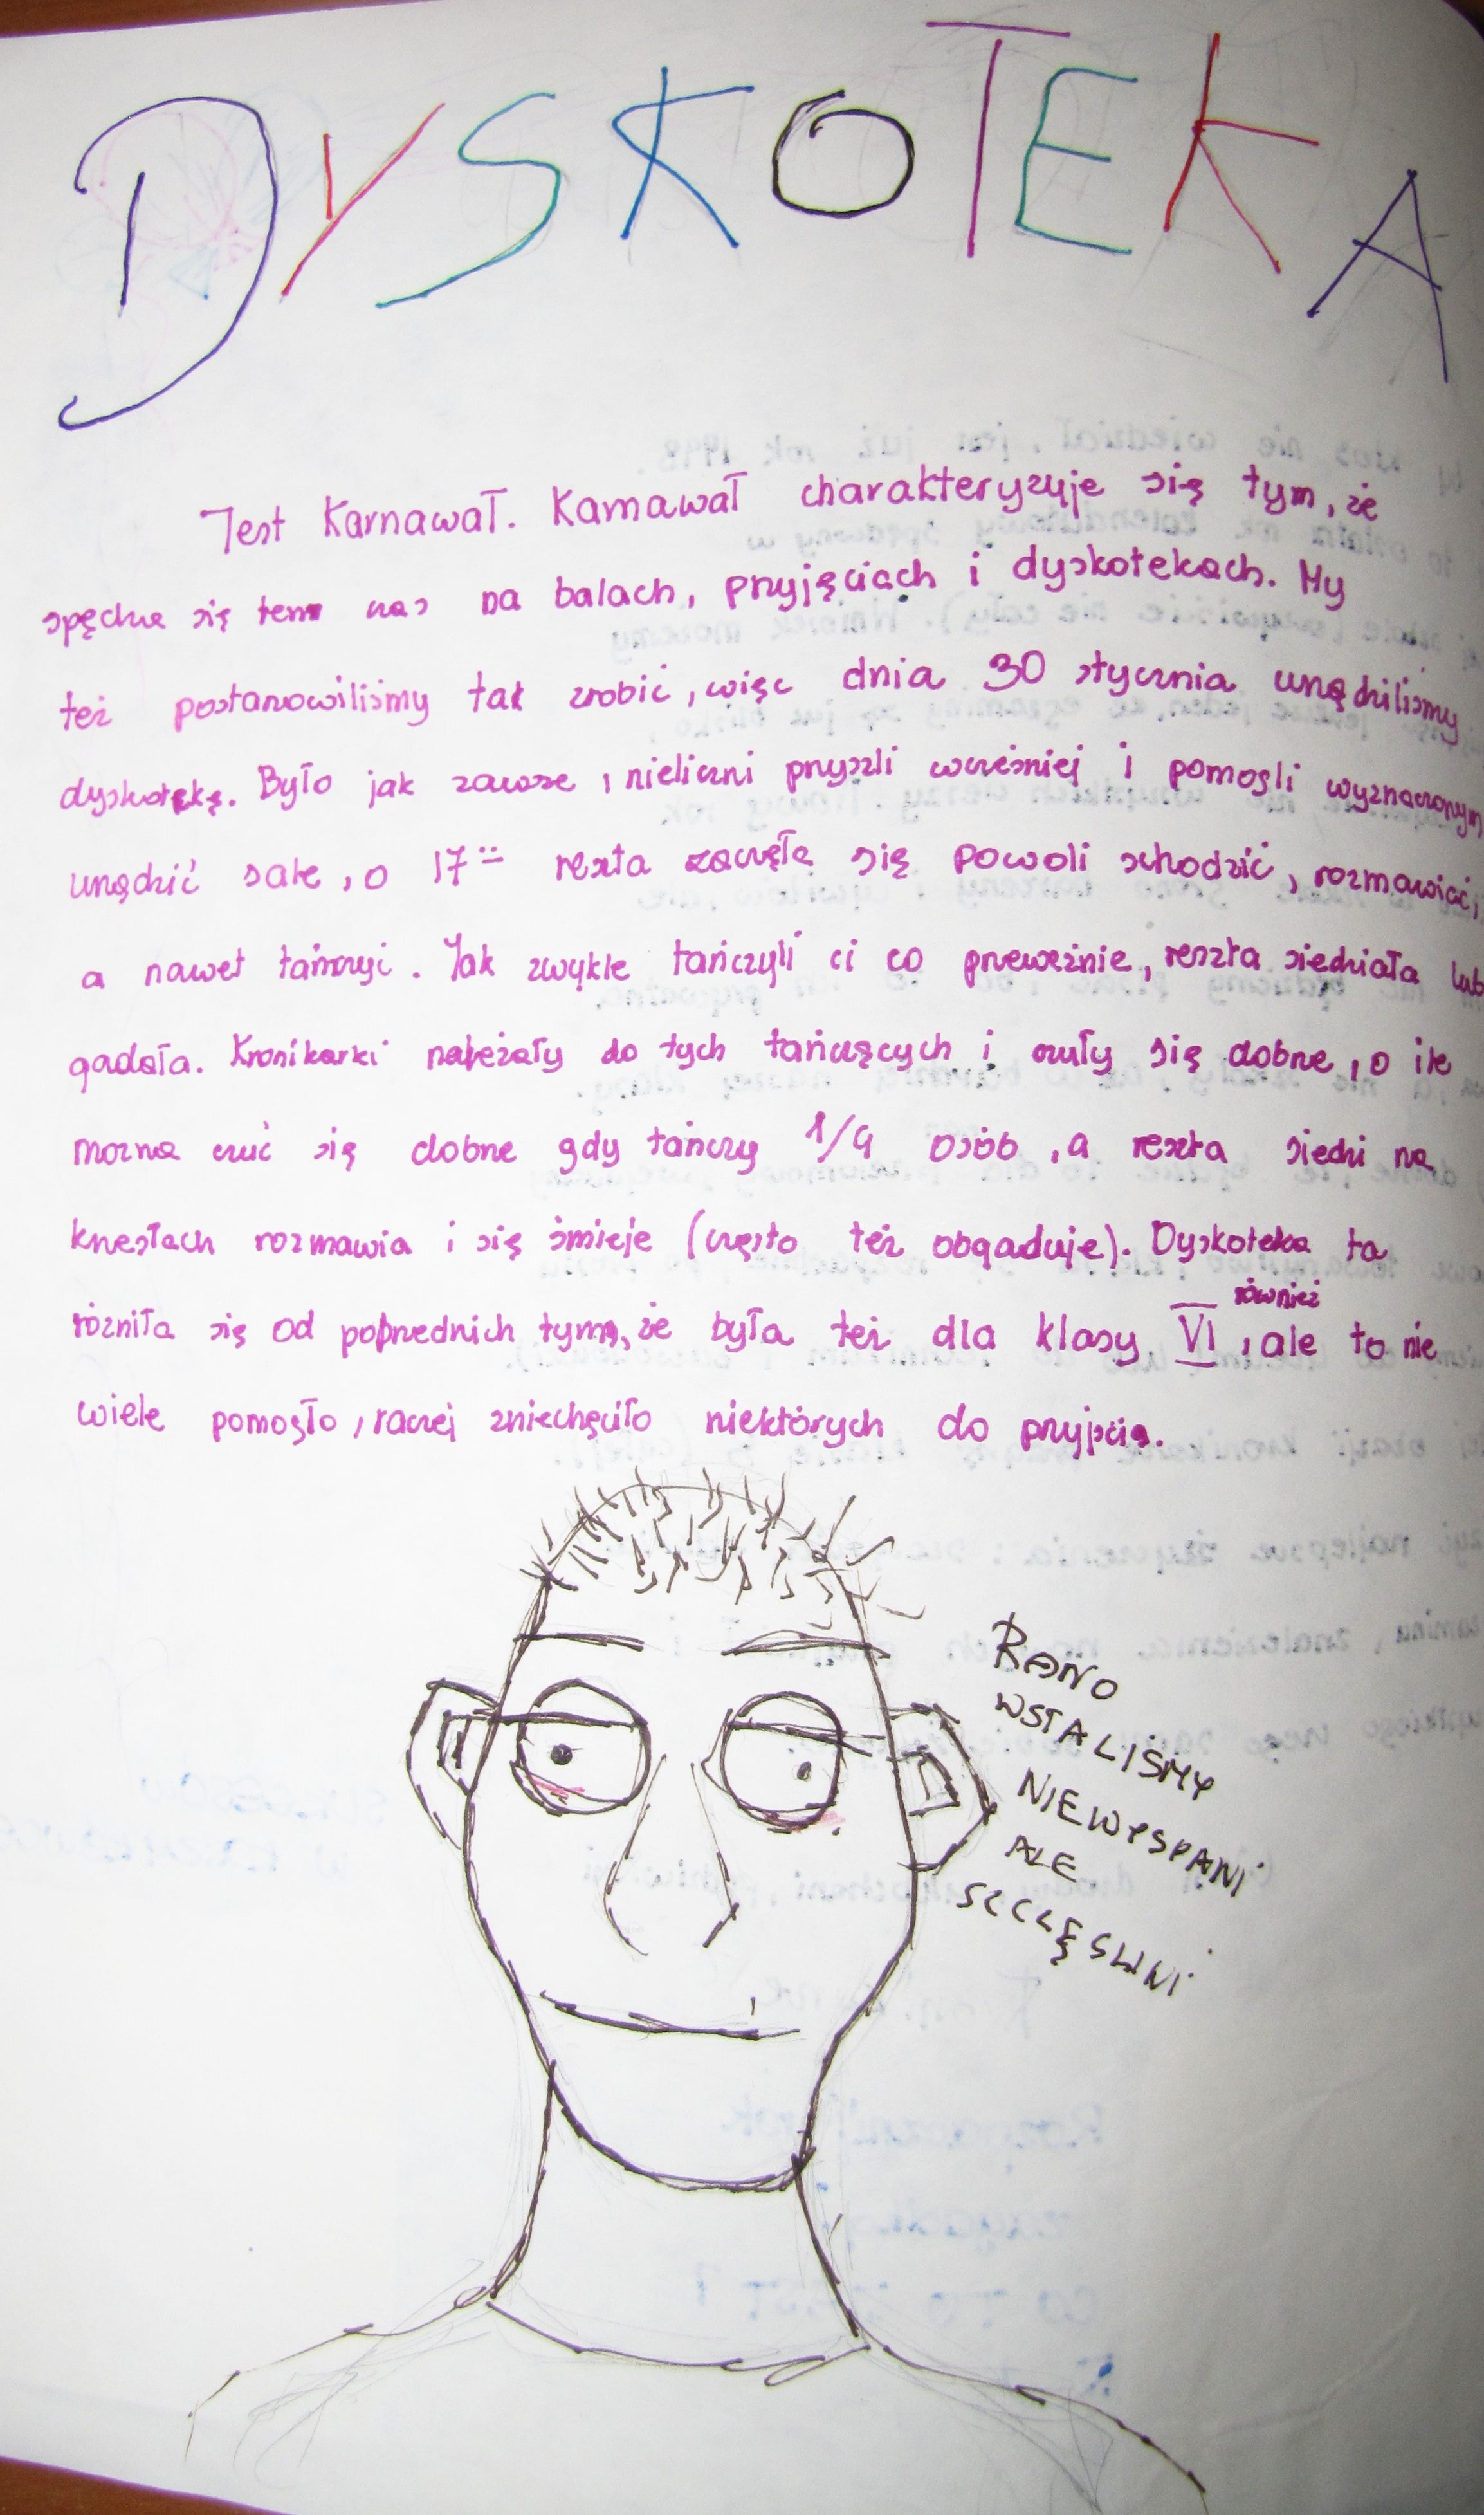 DYSKOTEKA
Jest Karnawał. Karnawał charakteryzuje się tym, że
spędza się ten czas na balach, przyjęciach i dyskotekach. My
też postanowiliśmy tak zrobić, więc dnia 30 stycznia urządziliśmy
dyskotekę. Było jak zawsze, nieliczni przyszli wcześniej i pomogli wyznaczonym
urządzić sale, o 17⁰⁰ reszta zaczęła się powoli schodzić, rozmawiać,
a nawet tańczyć. Jak zwykle tańczyli ci co przeważnie, reszta siedziała lub
gadała. Kronikarki należały do tych tańczących i czuły się dobrze, o ile
można czuć się dobrze gdy tańczy 1/4 osób, a reszta siedzi na
krzesłach rozmawia i się śmieje (często też obgaduje). Dyskoteka ta
różniła się od poprzednich tym, że była też dla klasy VI, ale to również nie
wiele pomogło, raczej zniechęciło niektórych do przyjścia.
RANO
WSTALIŚMY
NIEWYSPANI
ALE
SZCZĘŚLIWI